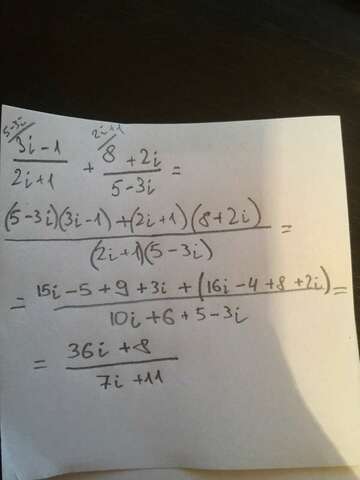 5-3i 2i+1
(3i-1)/(2i+1) + (8+2i)/(5-3i) =
((5-3i)(3i-1)+(2i+1)(8+2i))/((2i+1)(5-3i)) =
= (15i-5+9+3i+(16i-4+8+2i))/(10i+6+5-3i) =
= (36i+8)/(7i+11)